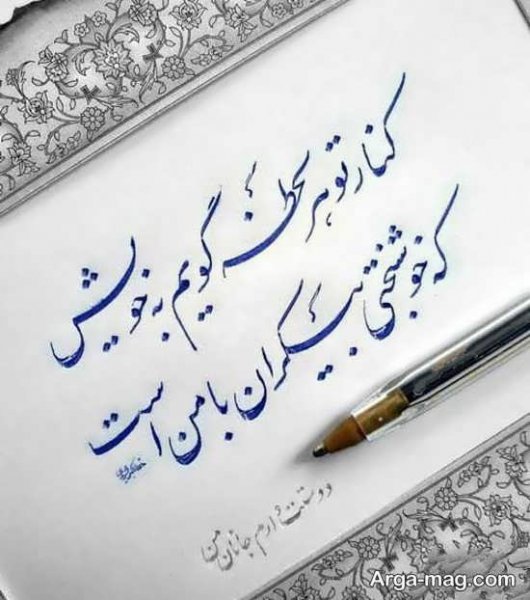 کنار تو هر لحظه گویم به خویش
که خوشبختی بیکران با من است
دوستت دارم جانان من
Arga-mag.com